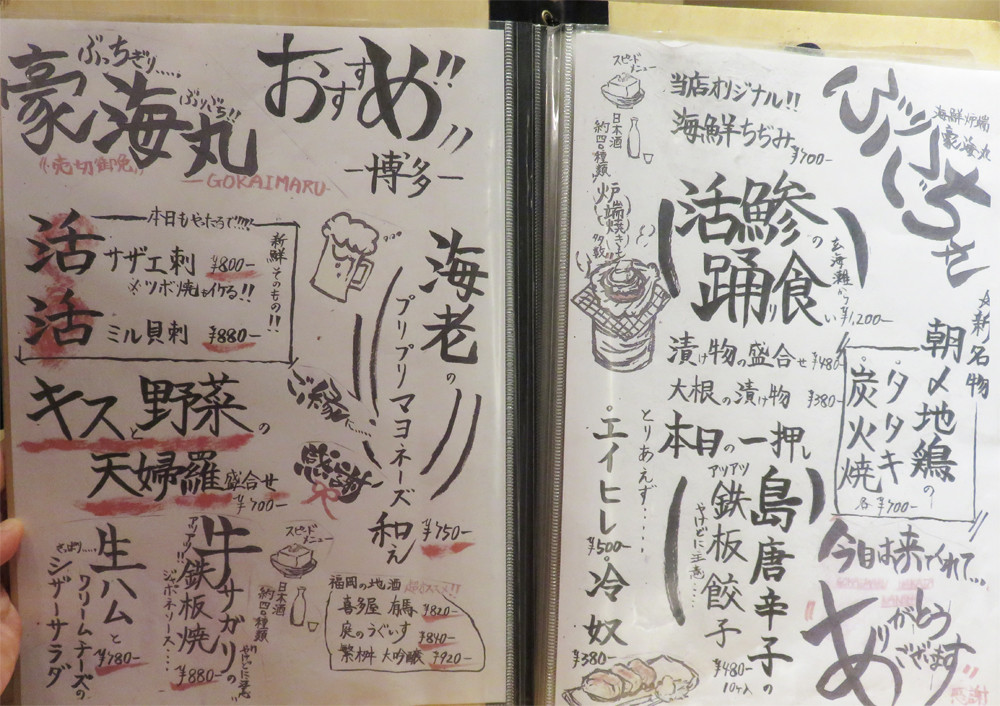 ぶっちぎり.....
豪海丸
ぶりぶち!!
"売切御免"
-GOKAIMARU-
おすすめ!!
-博多-
本日もやったるで!!!!
活 サザエ刺 ¥800-
※ツボ焼もイケる!!
活 ミル貝刺 ¥880-
新鮮そのもの!!
海老の
プリプリマヨネーズ
和え ¥750-
キスと野菜の
天婦羅盛合せ
¥700-
ご縁に.....
感謝や
さっぱり.....
生ハムと
クリームチーズの
シザーサラダ
¥780-
牛サガリの
アツアツ!!鉄板焼
ジャポネソース....
"やけどに注意"
¥880-
スピードメニュー
日本酒
約四〇種類
福岡の地酒
喜多屋 有馬 ¥820-
庭のうぐいす ¥840-
繁桝 大吟醸 ¥920-
スピードメニュー
日本酒
約四〇種類
炉端焼きも
多数
当店オリジナル!!
海鮮ちぢみ
¥700-
海鮮炉端
豪海丸
活鯵の
踊り食い
玄海灘から
¥1,200-
漬け物の盛合せ ¥480-
大根の漬け物 ¥380-
本日の一押し
島唐辛子の
アツアツ鉄板餃子
やけどに注意....
¥480-
10ヶ入
とりあえず....
エイヒレ
¥500-
冷奴
¥380-
新名物
朝〆地鶏の
タタキ
炭火焼
各¥700-
今日は来てくれて...
ありがとう
ございます